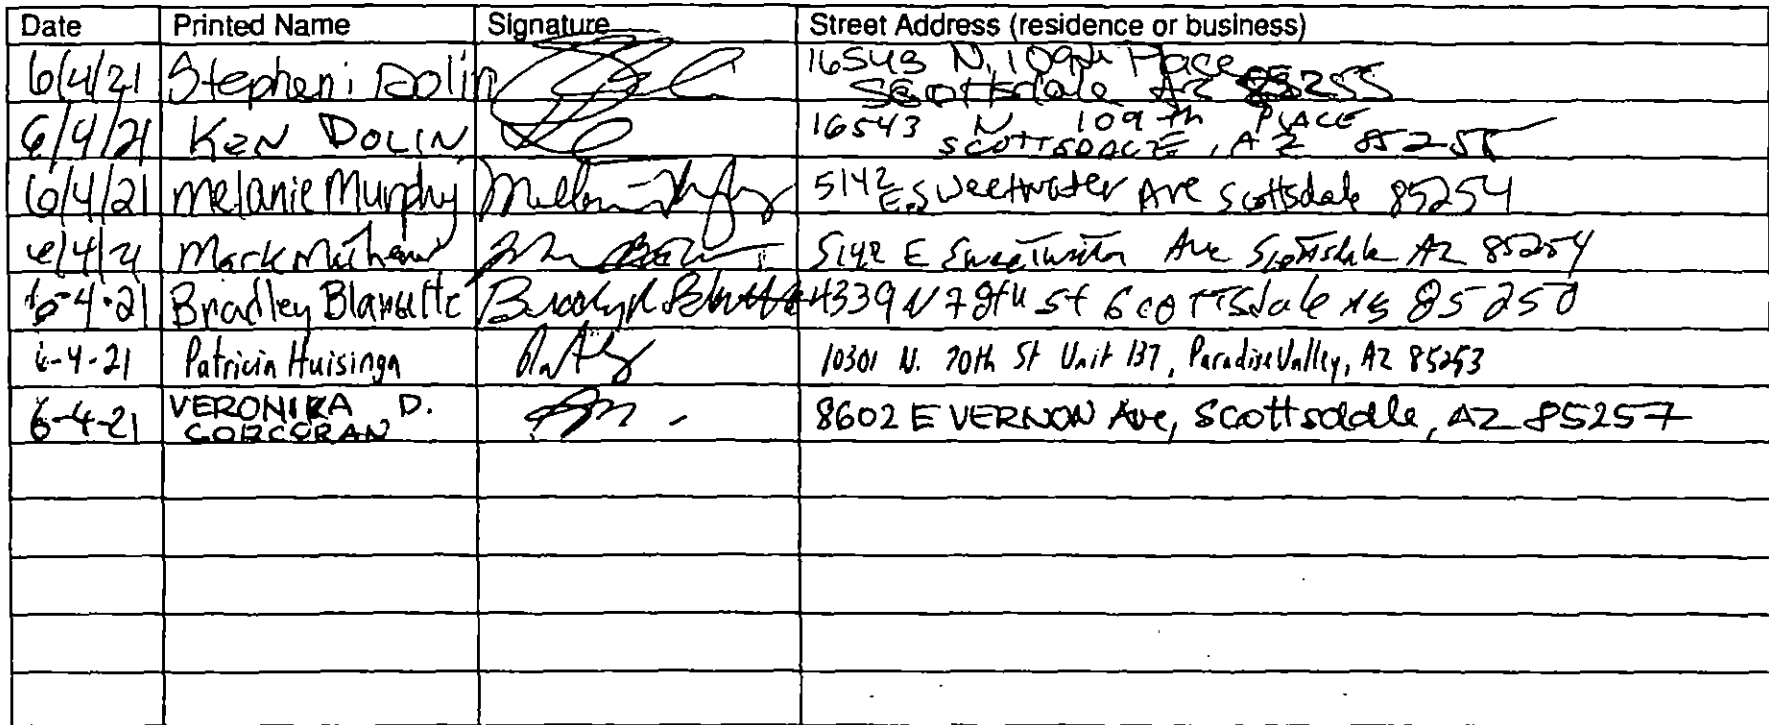 Date Printed Name Signature Street Address (residence or business)
6/4/21 Stepheni Dolin 16543 N. 109th Place
Scottsdale AZ 85255
6/4/21 Ken DOLIN 16543 N 109th PLACE
SCOTTSDALE, AZ 85255
6/4/21 Melanie Murphy 5142 E. Sweetwater Ave Scottsdale 85254
6/4/21 Mark 5142 E Sweetwater Ave Scottsdale AZ 85254
6-4-21 Bradley 4339 N 78th St Scottsdale 85250
6-4-21 Patricia Huisinga 10301 N. 70th St Unit 137, Paradise Valley, AZ 85253
6-4-21 VERONIKA D. 8602 E VERNON Ave, Scottsdale, AZ 85257
CORCORAN